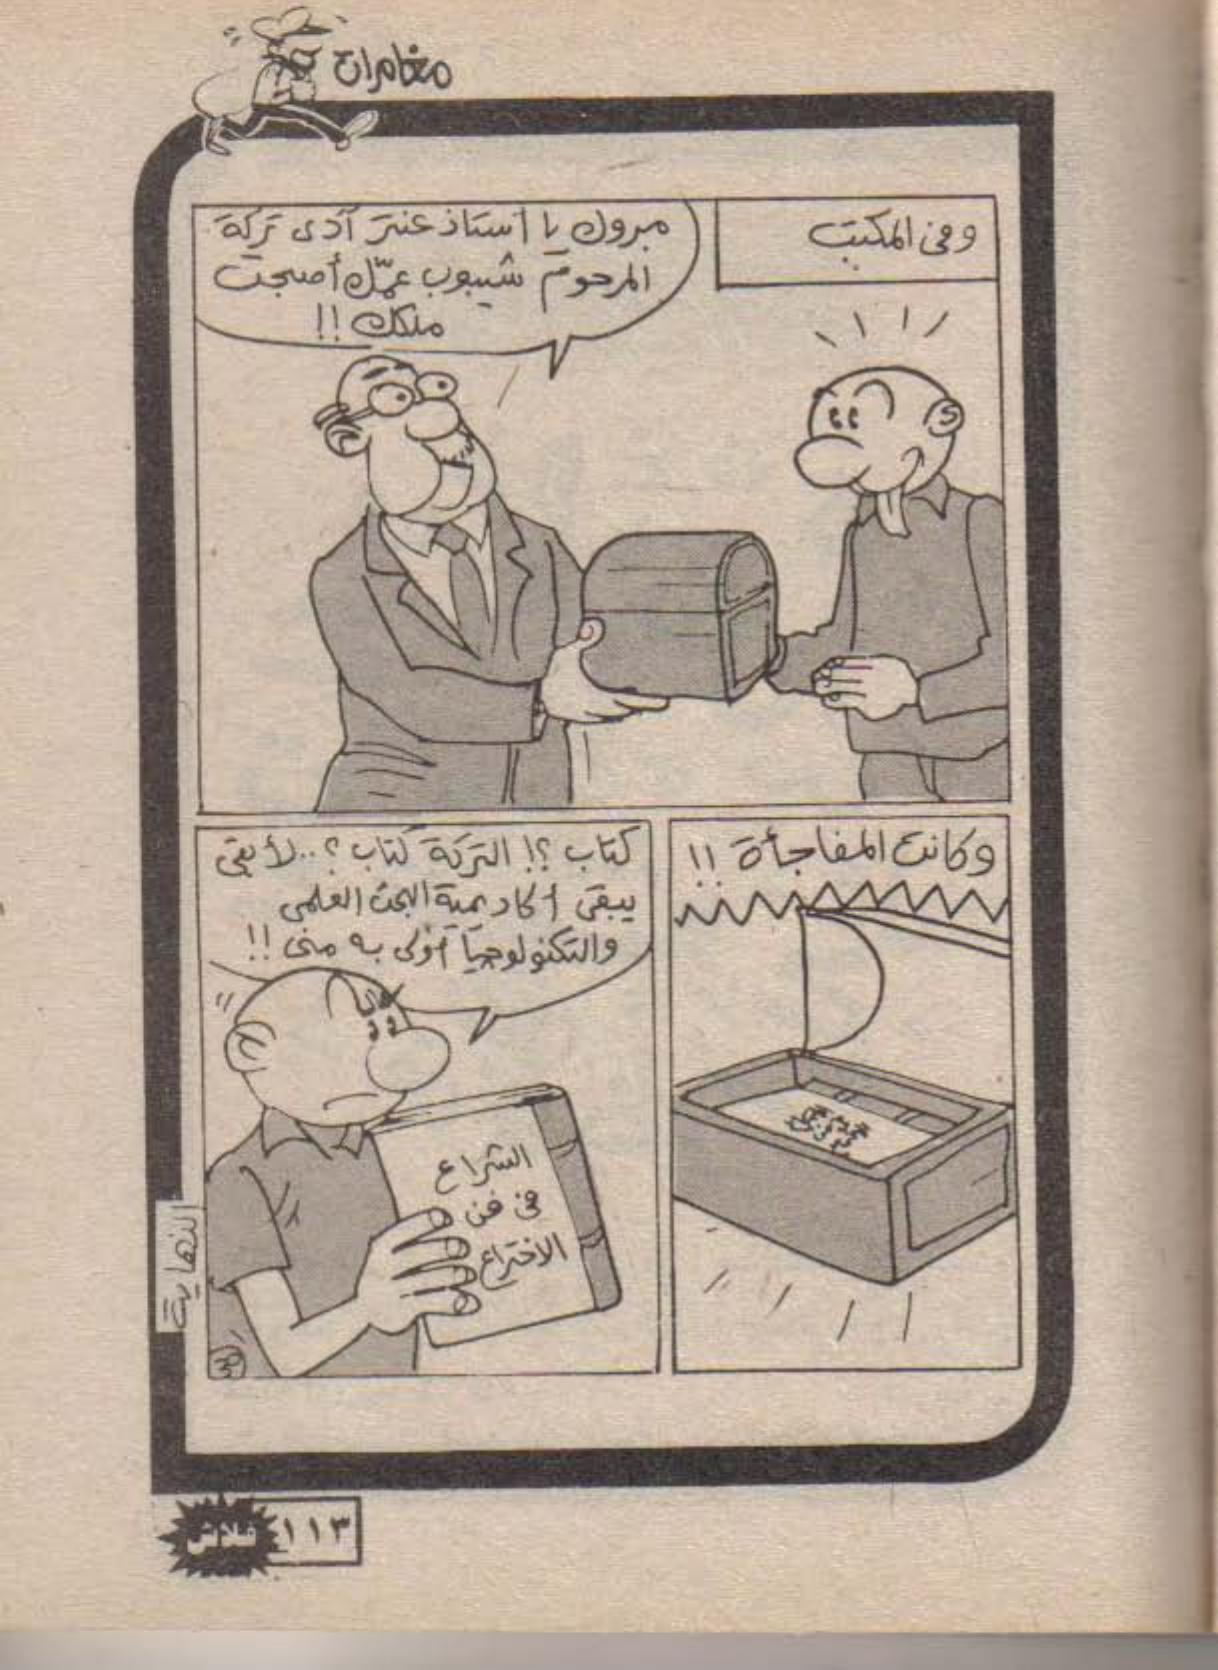 مغامرات
وفى المكتب
مبروك يا أستاذ عنتر آدى تركة
المرحوم شيبوب عمّك أصبحت
ملكك !!
وكانت المفاجأة !!
كتاب ؟! التركة كتاب ؟..لأ بقى
يبقى أكاديمية البحث العلمى
والتكنولوجيا أولى به منى !!
الشراع
فى فن
الاختراع
النهاية
١١٣
فلاش